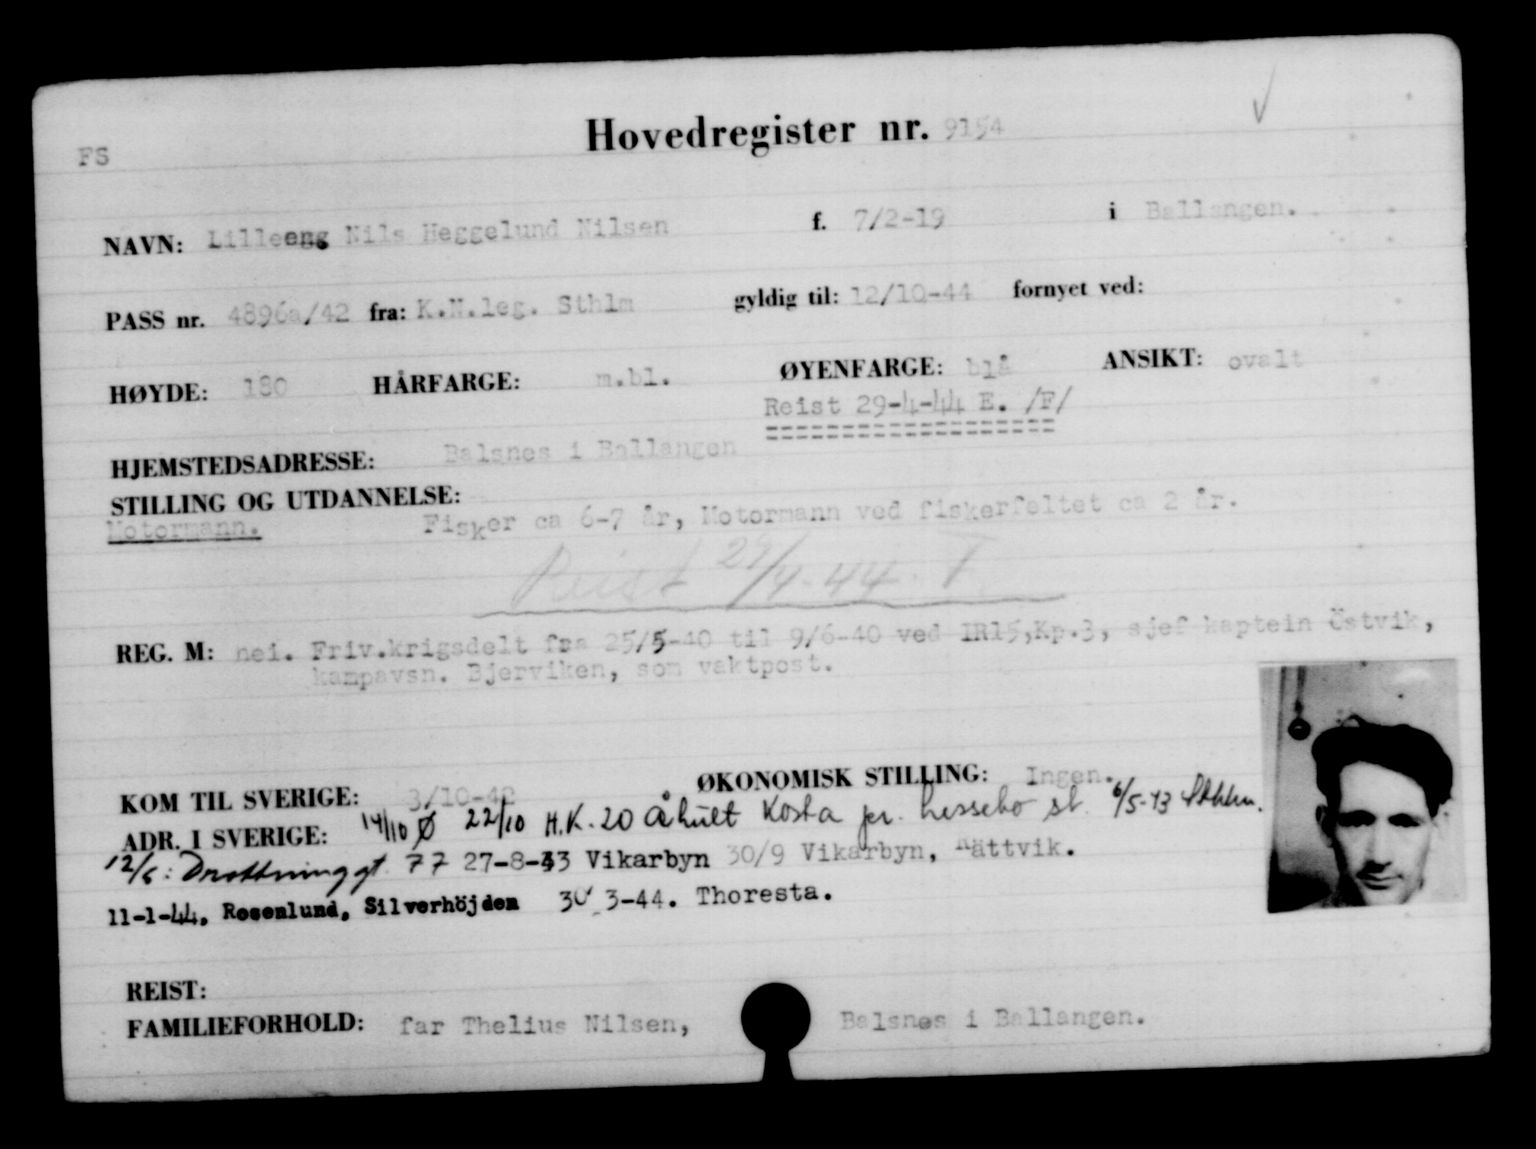 FS
Hovedregister nr. 9154
NAVN: Lilleeng Nils Heggelund Nilsen f. 7/2-19 i Ballangen.
PASS nr. 4896a/42 fra: K.N.leg. Sthlm gyldig til: 12/10-44 fornyet ved:
HØYDE: 180 HÅRFARGE: m.bl. ØYENFARGE: blå ANSIKT: ovalt
Reist 29-4-44 E. /F/
HJEMSTEDSADRESSE: Balsnes i Ballangen
STILLING OG UTDANNELSE:
Motormann. Fisker ca 6-7 år, Motormann ved fiskerfeltet ca 2 år.
Reist 29/4-44. F
REG. M: nei. Friv.krigsdelt fra 25/5-40 til 9/6-40 ved IR15,Kp.3, sjef kaptein Östvik,
kampavsn. Bjerviken, som vaktpost.
KOM TIL SVERIGE: 3/10-42 ØKONOMISK STILLING: Ingen.
ADR. I SVERIGE: 14/10 Ø 22/10 H.K. 20 Åhult Kosta pr. Lessebo st. 6/5-43 Sthlm.
12/6: Drottninggt. 77 27-8-43 Vikarbyn 30/9 Vikarbyn, Rättvik.
11-1-44. Rosenlund, Silverhöjden 30 3-44. Thoresta.
REIST:
FAMILIEFORHOLD: far Thelius Nilsen, Balsnes i Ballangen.